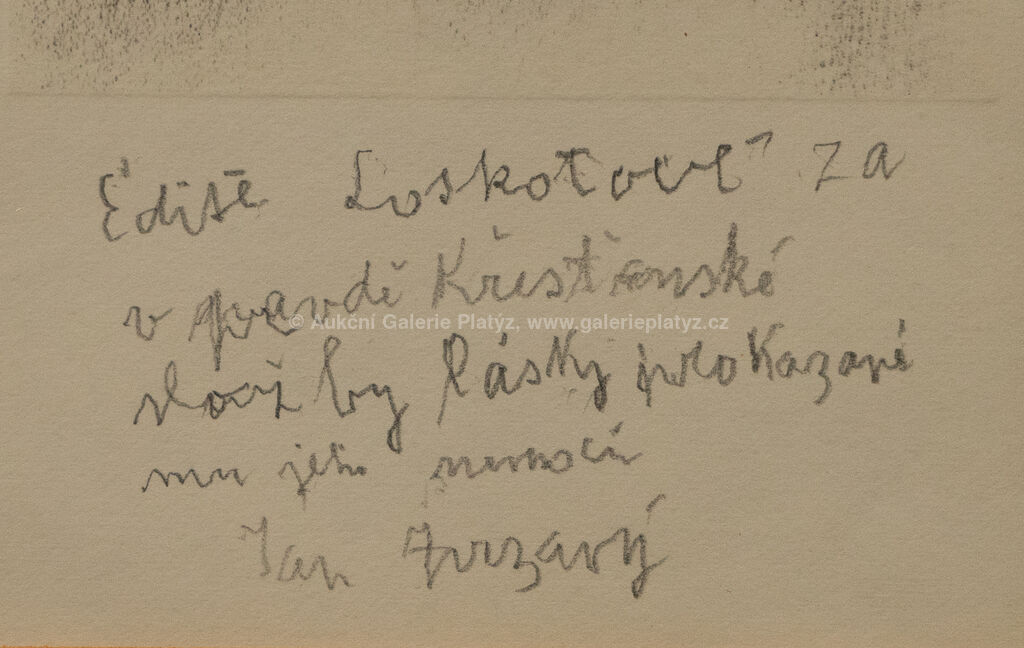 Editě Loskotové za
v pravdě Křesťanské
služby lásky prokázané
mu jeho nemoci
Jan Zrzavý
© Aukční Galerie Platýz, www.galerieplatyz.cz